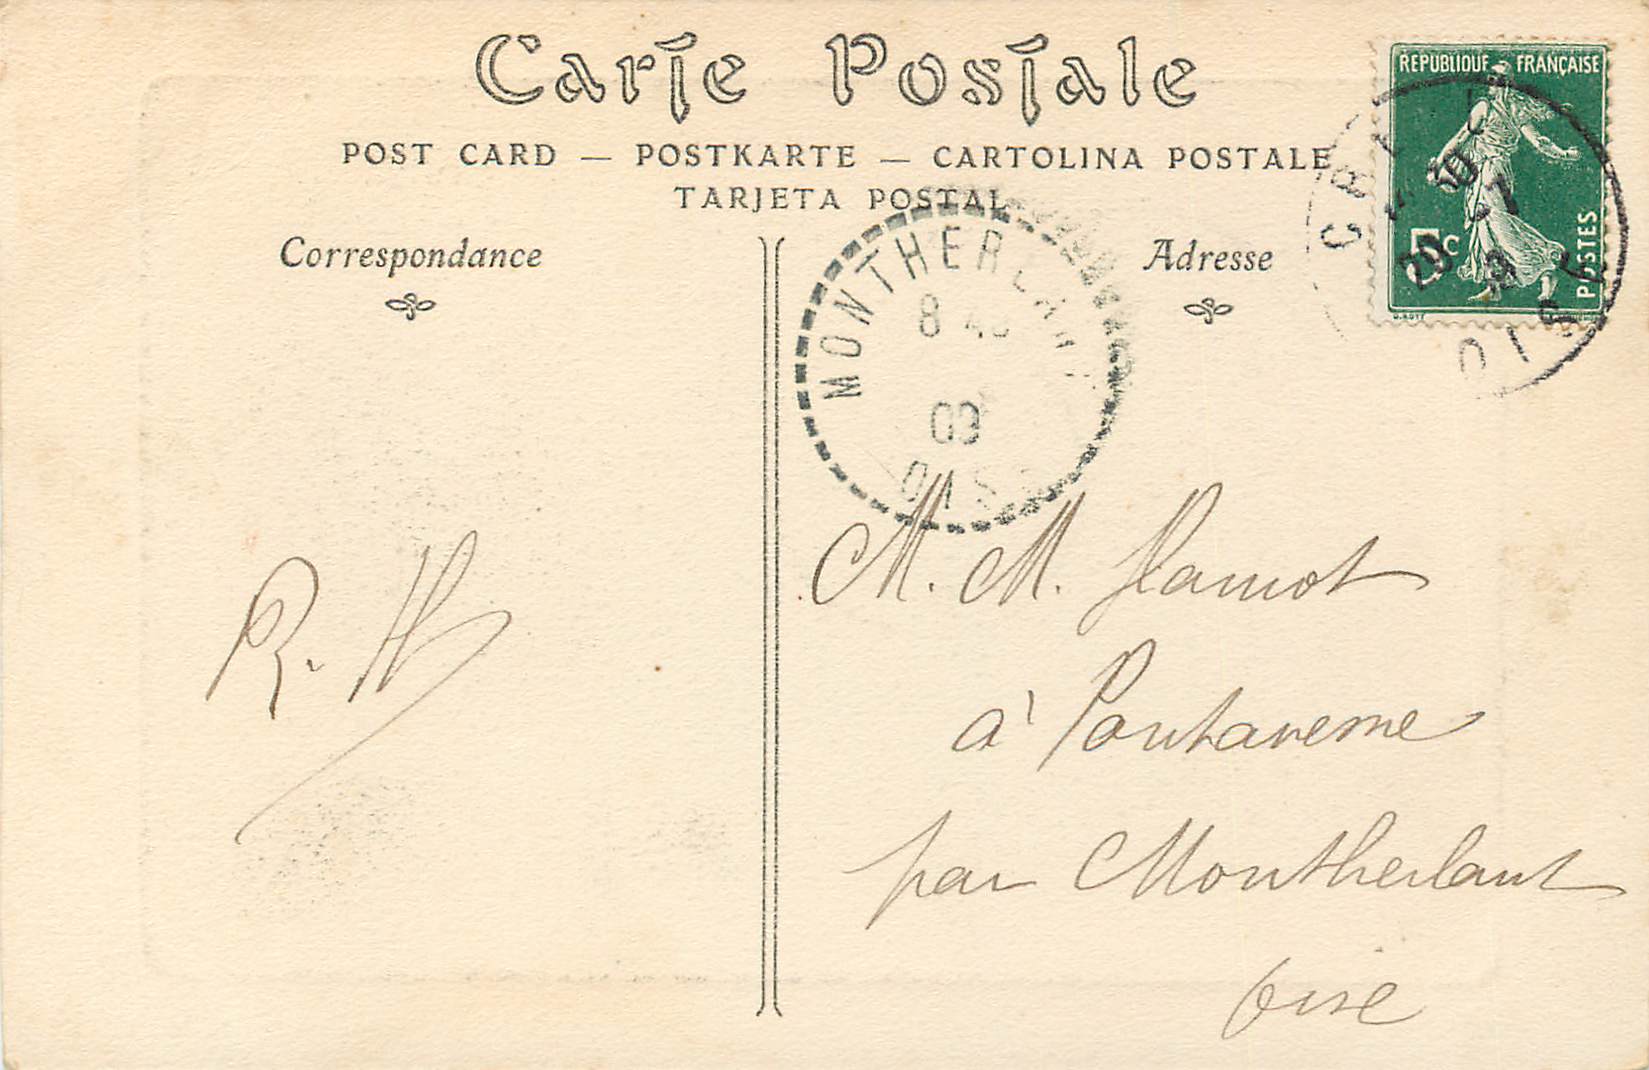 Carte Postale
POST CARD — POSTKARTE — CARTOLINA POSTALE
TARJETA POSTAL
Correspondance
Adresse
RÉPUBLIQUE FRANÇAISE
5c
POSTES
MONTHERLANT
8
09
OISE
20
OISE
R. H
M. M. Hamot
à Pontavesne
par Montherlant
Oise